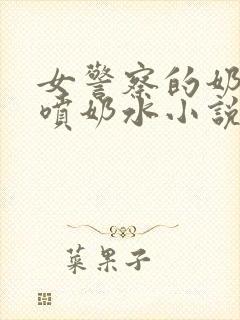 女警察的奶
喷奶水小説
菜果子